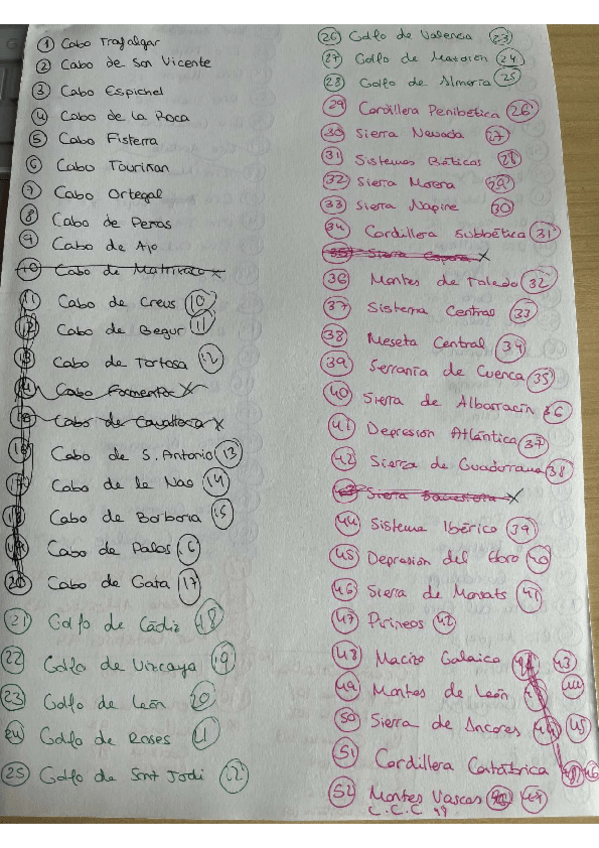 1 Cabo Trafalgar
2 Cabo de San Vicente
3 Cabo Espichel
4 Cabo de la Roca
5 Cabo Fisterra
6 Cabo Touriñan
7 Cabo Ortegal
8 Cabo de Peñas
9 Cabo de Ajo
10 Cabo de
11 Cabo de Creus 10
12 Cabo de Begur 11
13 Cabo de Tortosa 12
14 Cabo Formentor
15 Cabo de
16 Cabo de S. Antonio 13
17 Cabo de la Nao 14
18 Cabo de Barbaria 15
19 Cabo de Palos 16
20 Cabo de Gata 17
21 Golfo de Cádiz 18
22 Golfo de Vizcaya 19
23 Golfo de León 20
24 Golfo de Roses 21
25 Golfo de Sant Jordi 22
26 Golfo de Valencia 23
27 Golfo de Mazarrón 24
28 Golfo de Almería 25
29 Cordillera Penibética 26
30 Sierra Nevada 27
31 Sistemas Béticos 28
32 Sierra Morena 29
33 Sierra Napine 30
34 Cordillera Subbética 31
35 Sierra
36 Montes de Toledo 32
37 Sistema Central 33
38 Meseta Central 34
39 Serranía de Cuenca 35
40 Sierra de Albarracín 36
41 Depresión Atlántica 37
42 Sierra de Guadarrama 38
43 Sierra
44 Sistema Ibérico 39
45 Depresión del Ebro 40
46 Sierra de Monsats 41
47 Pirineos 42
48 Macizo Galaico 43
49 Montes de León 44
50 Sierra de Ancares 44 45
51 Cordillera Cantábrica 46
52 Montes Vascos 47
C.C.C 49